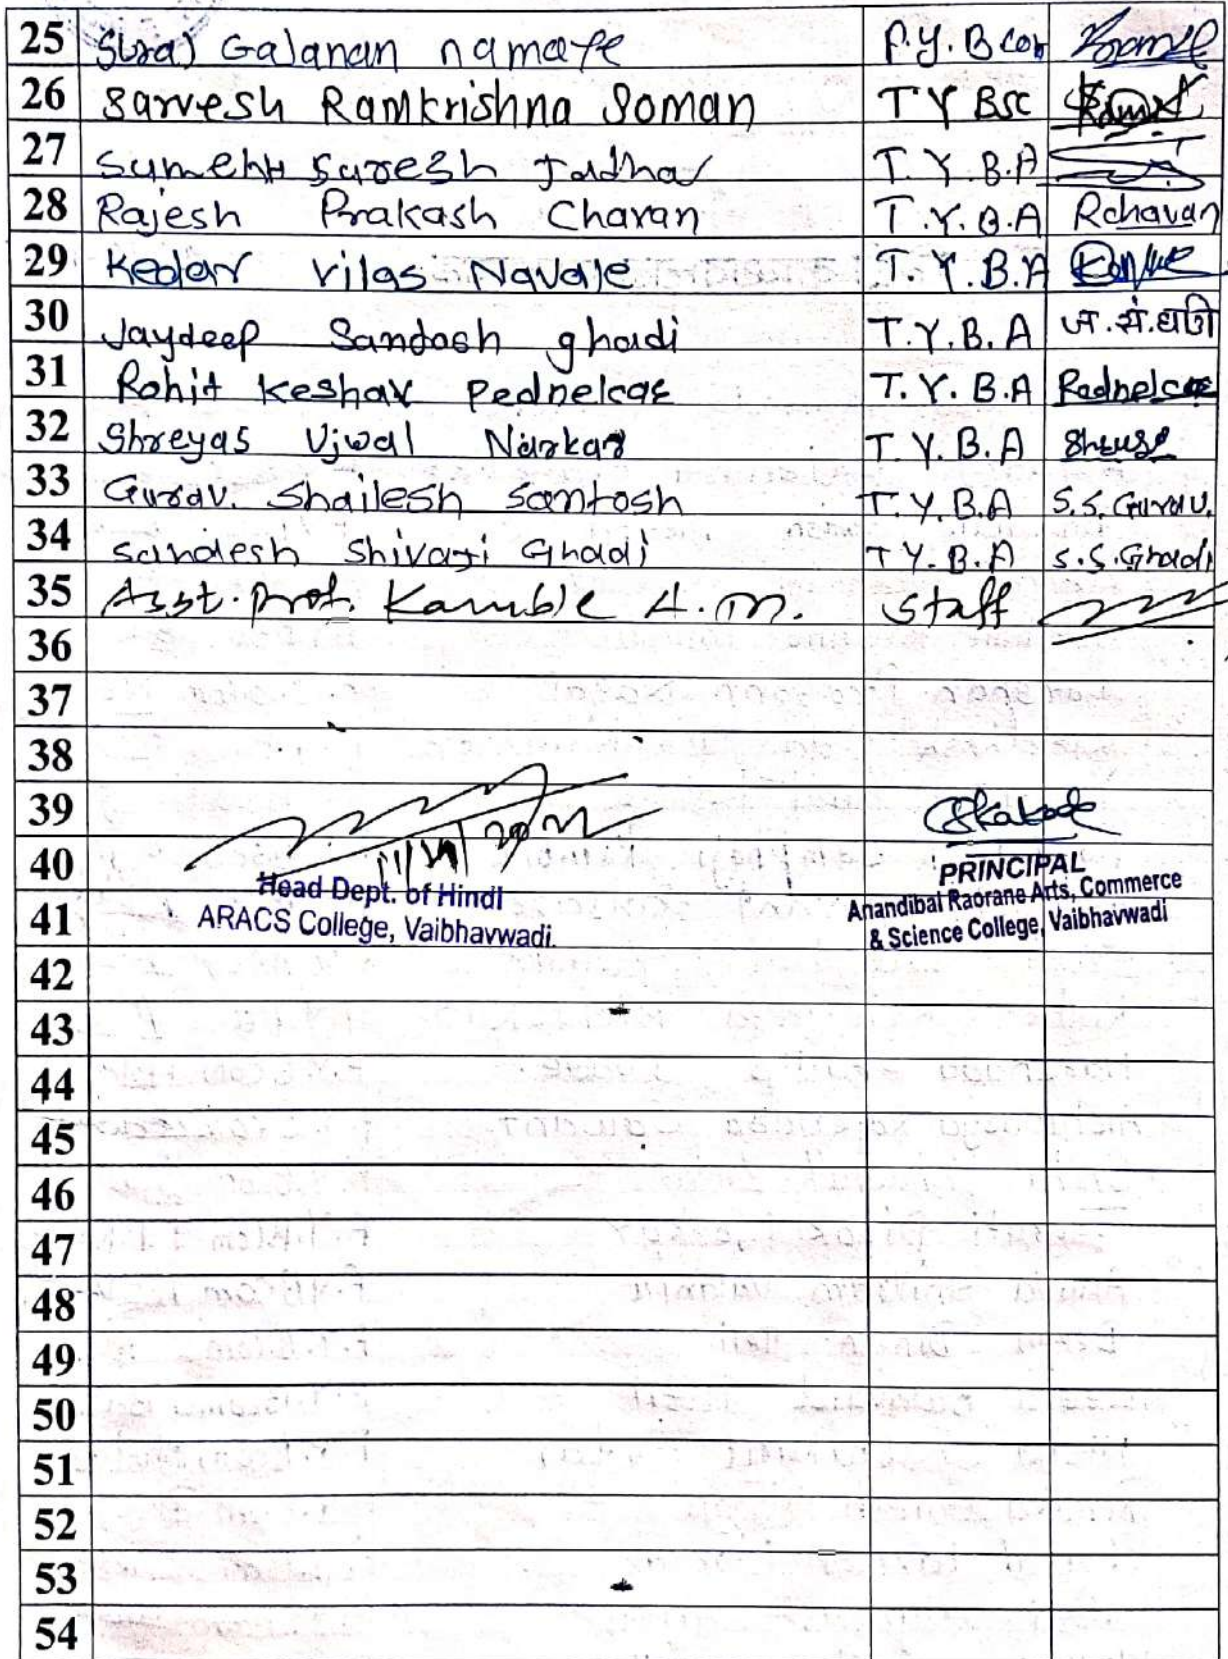 25 Suraj Gajanan namate F.Y. B com
26 Sarvesh Ramkrishna Soman T Y BSC
27 Sumeht Suresh Jadhav T.Y.B.A
28 Rajesh Prakash Chavan T.Y.B.A Rchavan
29 Kedar Vilas Navale T.Y.B.A
30 Jaydeep Santosh ghadi T.Y.B.A ज.सं.घाडी
31 Rohit Keshav Pednekar T.Y.B.A Pednekar
32 Shreyas Ujwal Narkar T.Y.B.A
33 Gurav. Shailesh Santosh T.Y.B.A S.S. Gurav.
34 Sandesh Shivaji Ghadi T Y.B.A S.S.Ghadi
35 Asst. Prof. Kamble A. M. Staff
36
37
38
39
40
Head Dept. of Hindi
ARACS College, Vaibhavwadi.
PRINCIPAL
Anandibai Raorane Arts, Commerce
& Science College, Vaibhavwadi
41
42
43
44
45
46
47
48
49
50
51
52
53
54